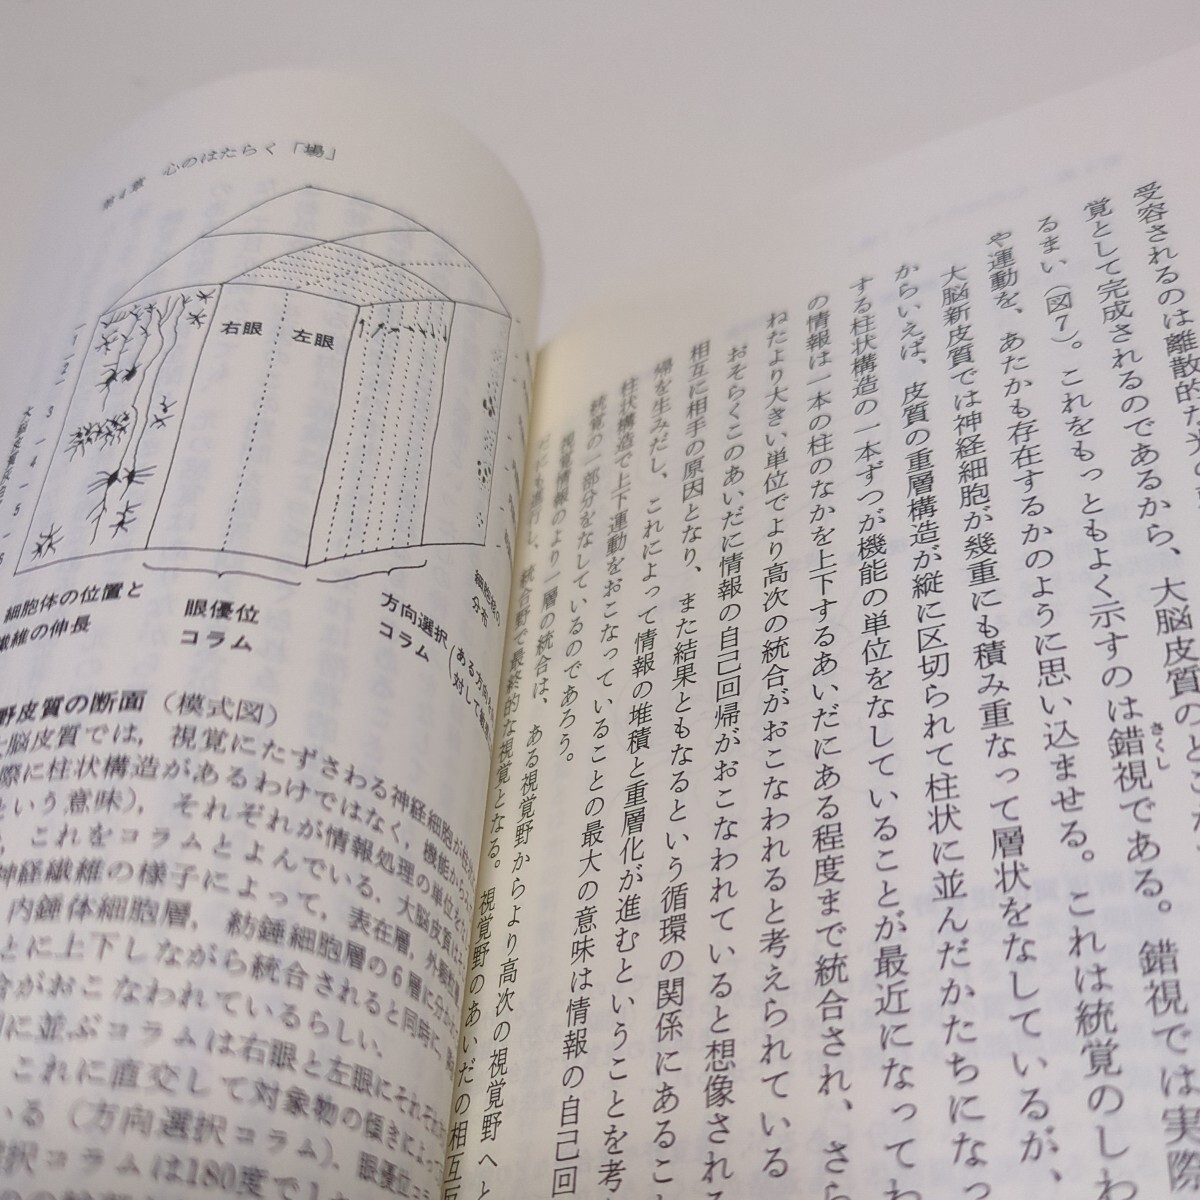 受容されるのは離散的な光
覚として完成されるのであるから、大脳皮質のど
るまい（図7）。これをもっともよく示すのは錯視である。錯視では実際
さくし
や運動を、あたかも存在するかのように思い込ませる。これは統覚のしわ
大脳新皮質では神経細胞が幾重にも積み重なって層状をなしているが、
からいえば、皮質の重層構造が縦に区切られて柱状に並んだかたちになっ
する柱状構造の一本ずつが機能の単位をなしていることが最近になってわ
の情報は一本の柱のなかを上下するあいだにある程度まで統合され、さら
ねたより大きい単位でより高次の統合がおこなわれると考えられている
おそらくこのあいだに情報の自己回帰がおこなわれていると想像され
相互に相手の原因となり、また結果ともなるという循環の関係にあるこ
帰を生みだし、これによって情報の堆積と重層化が進むということを考
柱状構造で上下運動をおこなっていることの最大の意味は情報の自己回
統覚の一部分をなしているのであろう。
視覚情報のより一層の統合は、ある視覚野からより高次の視覚野へと
だにも進行し、統合野で最終的な視覚となる。視覚野のあいだの相互
第4章 心のはたらく「場」
右眼
左眼
1
2
3
4
5
6
細胞体の位置と
繊維の伸長
眼優位
コラム
方向選択
コラム
ある方向
対して
分布
野皮質の断面（模式図）
脳皮質では，視覚にたずさわる神経細胞が
際に柱状構造があるわけではなく，機能から
という意味），それぞれが情報処理の単位を
，これをコラムとよんでいる．大脳皮質は
神経繊維の様子によって，表在層，外顆粒
内錘体細胞層，紡錘細胞層の6層に分か
とに上下しながら統合されると同時に，
がおこなわれているらしい．
に並ぶコラムは右眼と左眼にそれぞれ
これに直交して対象物の傾きによっ
いる（方向選択コラム）．眼優位コラ
択コラムは180度で1